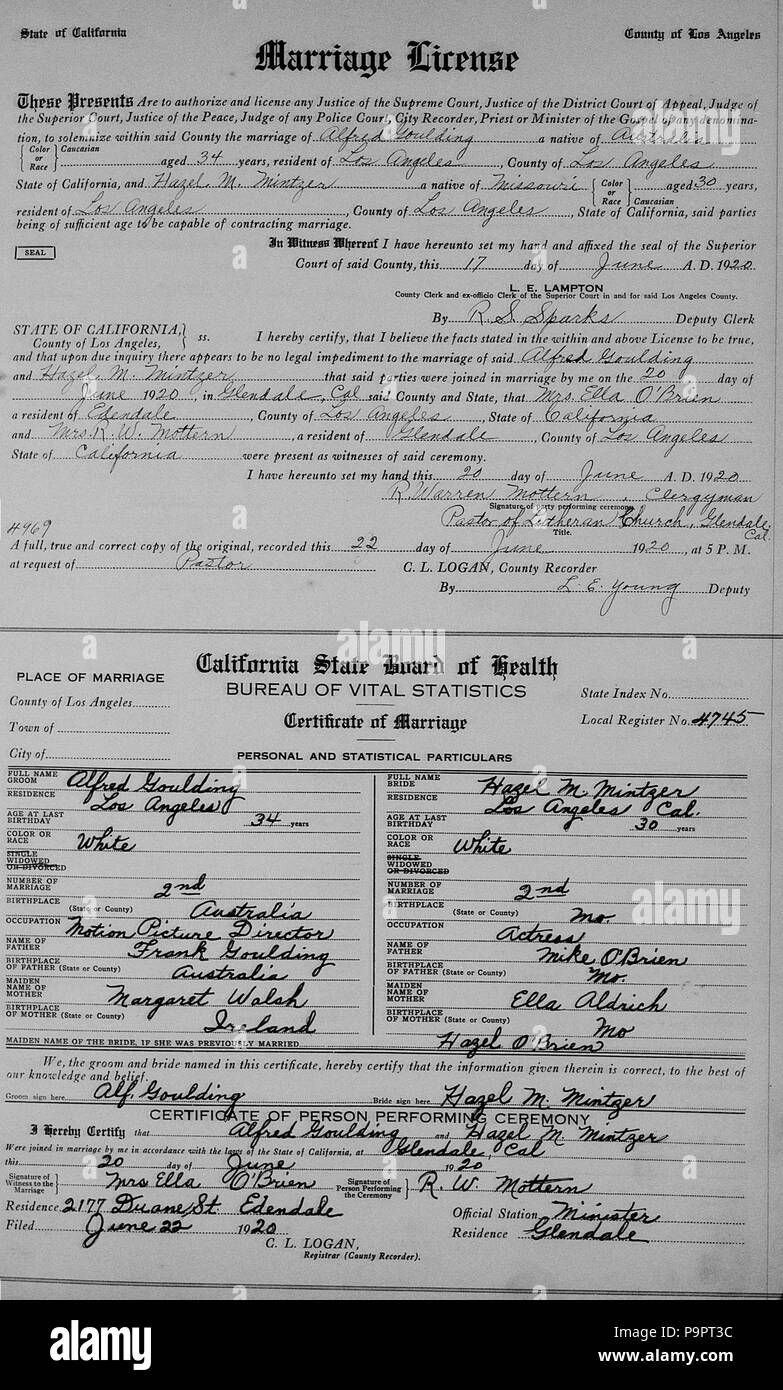 State of California County of Los Angeles
Marriage License
These Presents Are to authorize and license any Justice of the Supreme Court, Justice of the District Court of Appeal, Judge of
the Superior Court, Justice of the Peace, Judge of any Police Court, City Recorder, Priest or Minister of the Gospel of any denomina-
tion, to solemnize within said County the marriage of Alfred Goulding a native of Australia
Color or Race Caucasian aged 34 years, resident of Los Angeles, County of Los Angeles
State of California, and Hazel M. Mintzer a native of Missouri Color or Race Caucasian aged 30 years,
resident of Los Angeles, County of Los Angeles, State of California, said parties
being of sufficient age to be capable of contracting marriage.
In Witness Whereof I have hereunto set my hand and affixed the seal of the Superior
SEAL
Court of said County, this 17 day of June A. D. 1920
L. E. LAMPTON
County Clerk and ex-officio Clerk of the Superior Court in and for said Los Angeles County.
By R. S. Sparks Deputy Clerk
STATE OF CALIFORNIA, County of Los Angeles, ss. I hereby certify, that I believe the facts stated in the within and above License to be true,
and that upon due inquiry there appears to be no legal impediment to the marriage of said Alfred Goulding
and Hazel M. Mintzer that said parties were joined in marriage by me on the 20 day of
June 1920, in Glendale, Cal said County and State, that Mrs. Ella O'Brien
a resident of Edendale, County of Los Angeles, State of California
and Mrs. R. W. Mottern, a resident of Glendale, County of Los Angeles
State of California were present as witnesses of said ceremony.
I have hereunto set my hand this 20 day of June A. D. 1920
R. Warren Mottern, Clergyman
Signature of party performing ceremony
Pastor of Lutheran Church, Glendale, Cal.
Title.
4969
A full, true and correct copy of the original, recorded this 22 day of June 1920, at 5 P. M.
at request of Pastor C. L. LOGAN, County Recorder
By L. E. Young Deputy
California State Board of Health
PLACE OF MARRIAGE
BUREAU OF VITAL STATISTICS
County of Los Angeles State Index No.
Certificate of Marriage
Town of Local Register No. 4745
City of
PERSONAL AND STATISTICAL PARTICULARS
FULL NAME GROOM Alfred Goulding FULL NAME BRIDE Hazel M. Mintzer
RESIDENCE Los Angeles RESIDENCE Los Angeles Cal.
AGE AT LAST BIRTHDAY 34 years AGE AT LAST BIRTHDAY 30 years
COLOR OR RACE White COLOR OR RACE White
SINGLE WIDOWED OR DIVORCED SINGLE WIDOWED OR DIVORCED
NUMBER OF MARRIAGE 2nd NUMBER OF MARRIAGE 2nd
BIRTHPLACE (State or County) Australia BIRTHPLACE (State or County) Mo.
OCCUPATION Motion Picture Director OCCUPATION Actress
NAME OF FATHER Frank Goulding NAME OF FATHER Mike O'Brien
BIRTHPLACE OF FATHER (State or County) Australia BIRTHPLACE OF FATHER (State or County) Mo.
MAIDEN NAME OF MOTHER Margaret Walsh MAIDEN NAME OF MOTHER Ella Aldrich
BIRTHPLACE OF MOTHER (State or County) Ireland BIRTHPLACE OF MOTHER (State or County) Mo
MAIDEN NAME OF THE BRIDE, IF SHE WAS PREVIOUSLY MARRIED Hazel O'Brien
We, the groom and bride named in this certificate, hereby certify that the information given therein is correct, to the best of
our knowledge and belief.
Groom sign here Alf. Goulding Bride sign here Hazel M. Mintzer
CERTIFICATE OF PERSON PERFORMING CEREMONY
I Hereby Certify that Alfred Goulding and Hazel M. Mintzer
Were joined in marriage by me in accordance with the laws of the State of California, at Glendale, Cal
this 20 day of June 1920
Signature of Witness to the Marriage Mrs Ella O'Brien Signature of Person Performing the Ceremony R. W. Mottern
Residence 2177 Duane St. Edendale Official Station Minister
Filed June 22 1920 Residence Glendale
C. L. LOGAN,
Registrar (County Recorder).
alamy
Image ID: P9PT3C
www.alamy.com